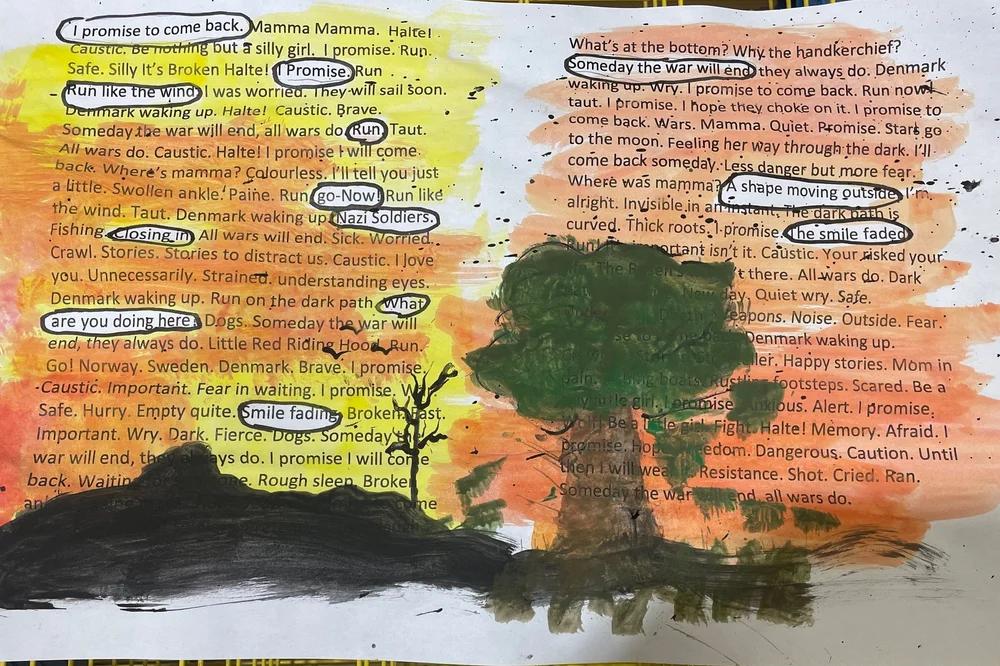 I promise to come back. Mamma Mamma. Halte!
Caustic. Be nothing but a silly girl. I promise. Run.
Safe. Silly It's Broken Halte! I Promise. Run
Run like the wind I was worried. They will sail soon.
Denmark waking up. Halte! Caustic. Brave.
Someday the war will end, all wars do. Run Taut.
All wars do. Caustic. Halte! I promise I will come.
back. Where's mamma? Colourless. I'll tell you just
a little. Swollen ankle. Paine. Run go-Now! Run like
the wind. Taut. Denmark waking up. Nazi Soldiers.
Fishing. Closing in All wars will end. Sick. Worried.
Crawl. Stories. Stories to distract us. Caustic. I love
you. Unnecessarily. Strained, understanding eyes.
Denmark waking up. Run on the dark path. What
are you doing here. Dogs. Someday the war will
end, they always do. Little Red Riding Hood. Run.
Go! Norway. Sweden. Denmark. Brave. I promise.
Caustic. Important. Fear in waiting. I promise.
Safe. Hurry. Empty quite. Smile fading. Broken Fast.
Important. Wry. Dark. Fierce. Dogs. Someday
war will end, they always do. I promise I will come
back. Rough sleep. Broken
come
What's at the bottom? Why the handkerchief?
Someday the war will end they always do. Denmark
waking up. Wry. I promise to come back. Run now!
taut. I promise. I hope they choke on it. I promise to
come back. Wars. Mamma. Quiet. Promise. Stars go
to the moon. Feeling her way through the dark. I'll
come back someday. Less danger but more fear.
Where was mamma? A shape moving outside I'm
alright. Invisible in an instant. The dark path is
curved. Thick roots. I promise. The smile faded
important isn't it. Caustic. Your risked your
The there. All wars do. Dark
day. Quiet wry. Safe.
Noise. Outside. Fear.
Denmark waking up.
Happy stories. Mom in
boats. footsteps. Scared. Be a
girl. I promise Anxious. Alert. I promise.
Be a little girl. Fight. Halte! Memory. Afraid. I
promise. Dangerous. Caution. Until
then I will Resistance. Shot. Cried. Ran.
Someday the war end, all wars do.